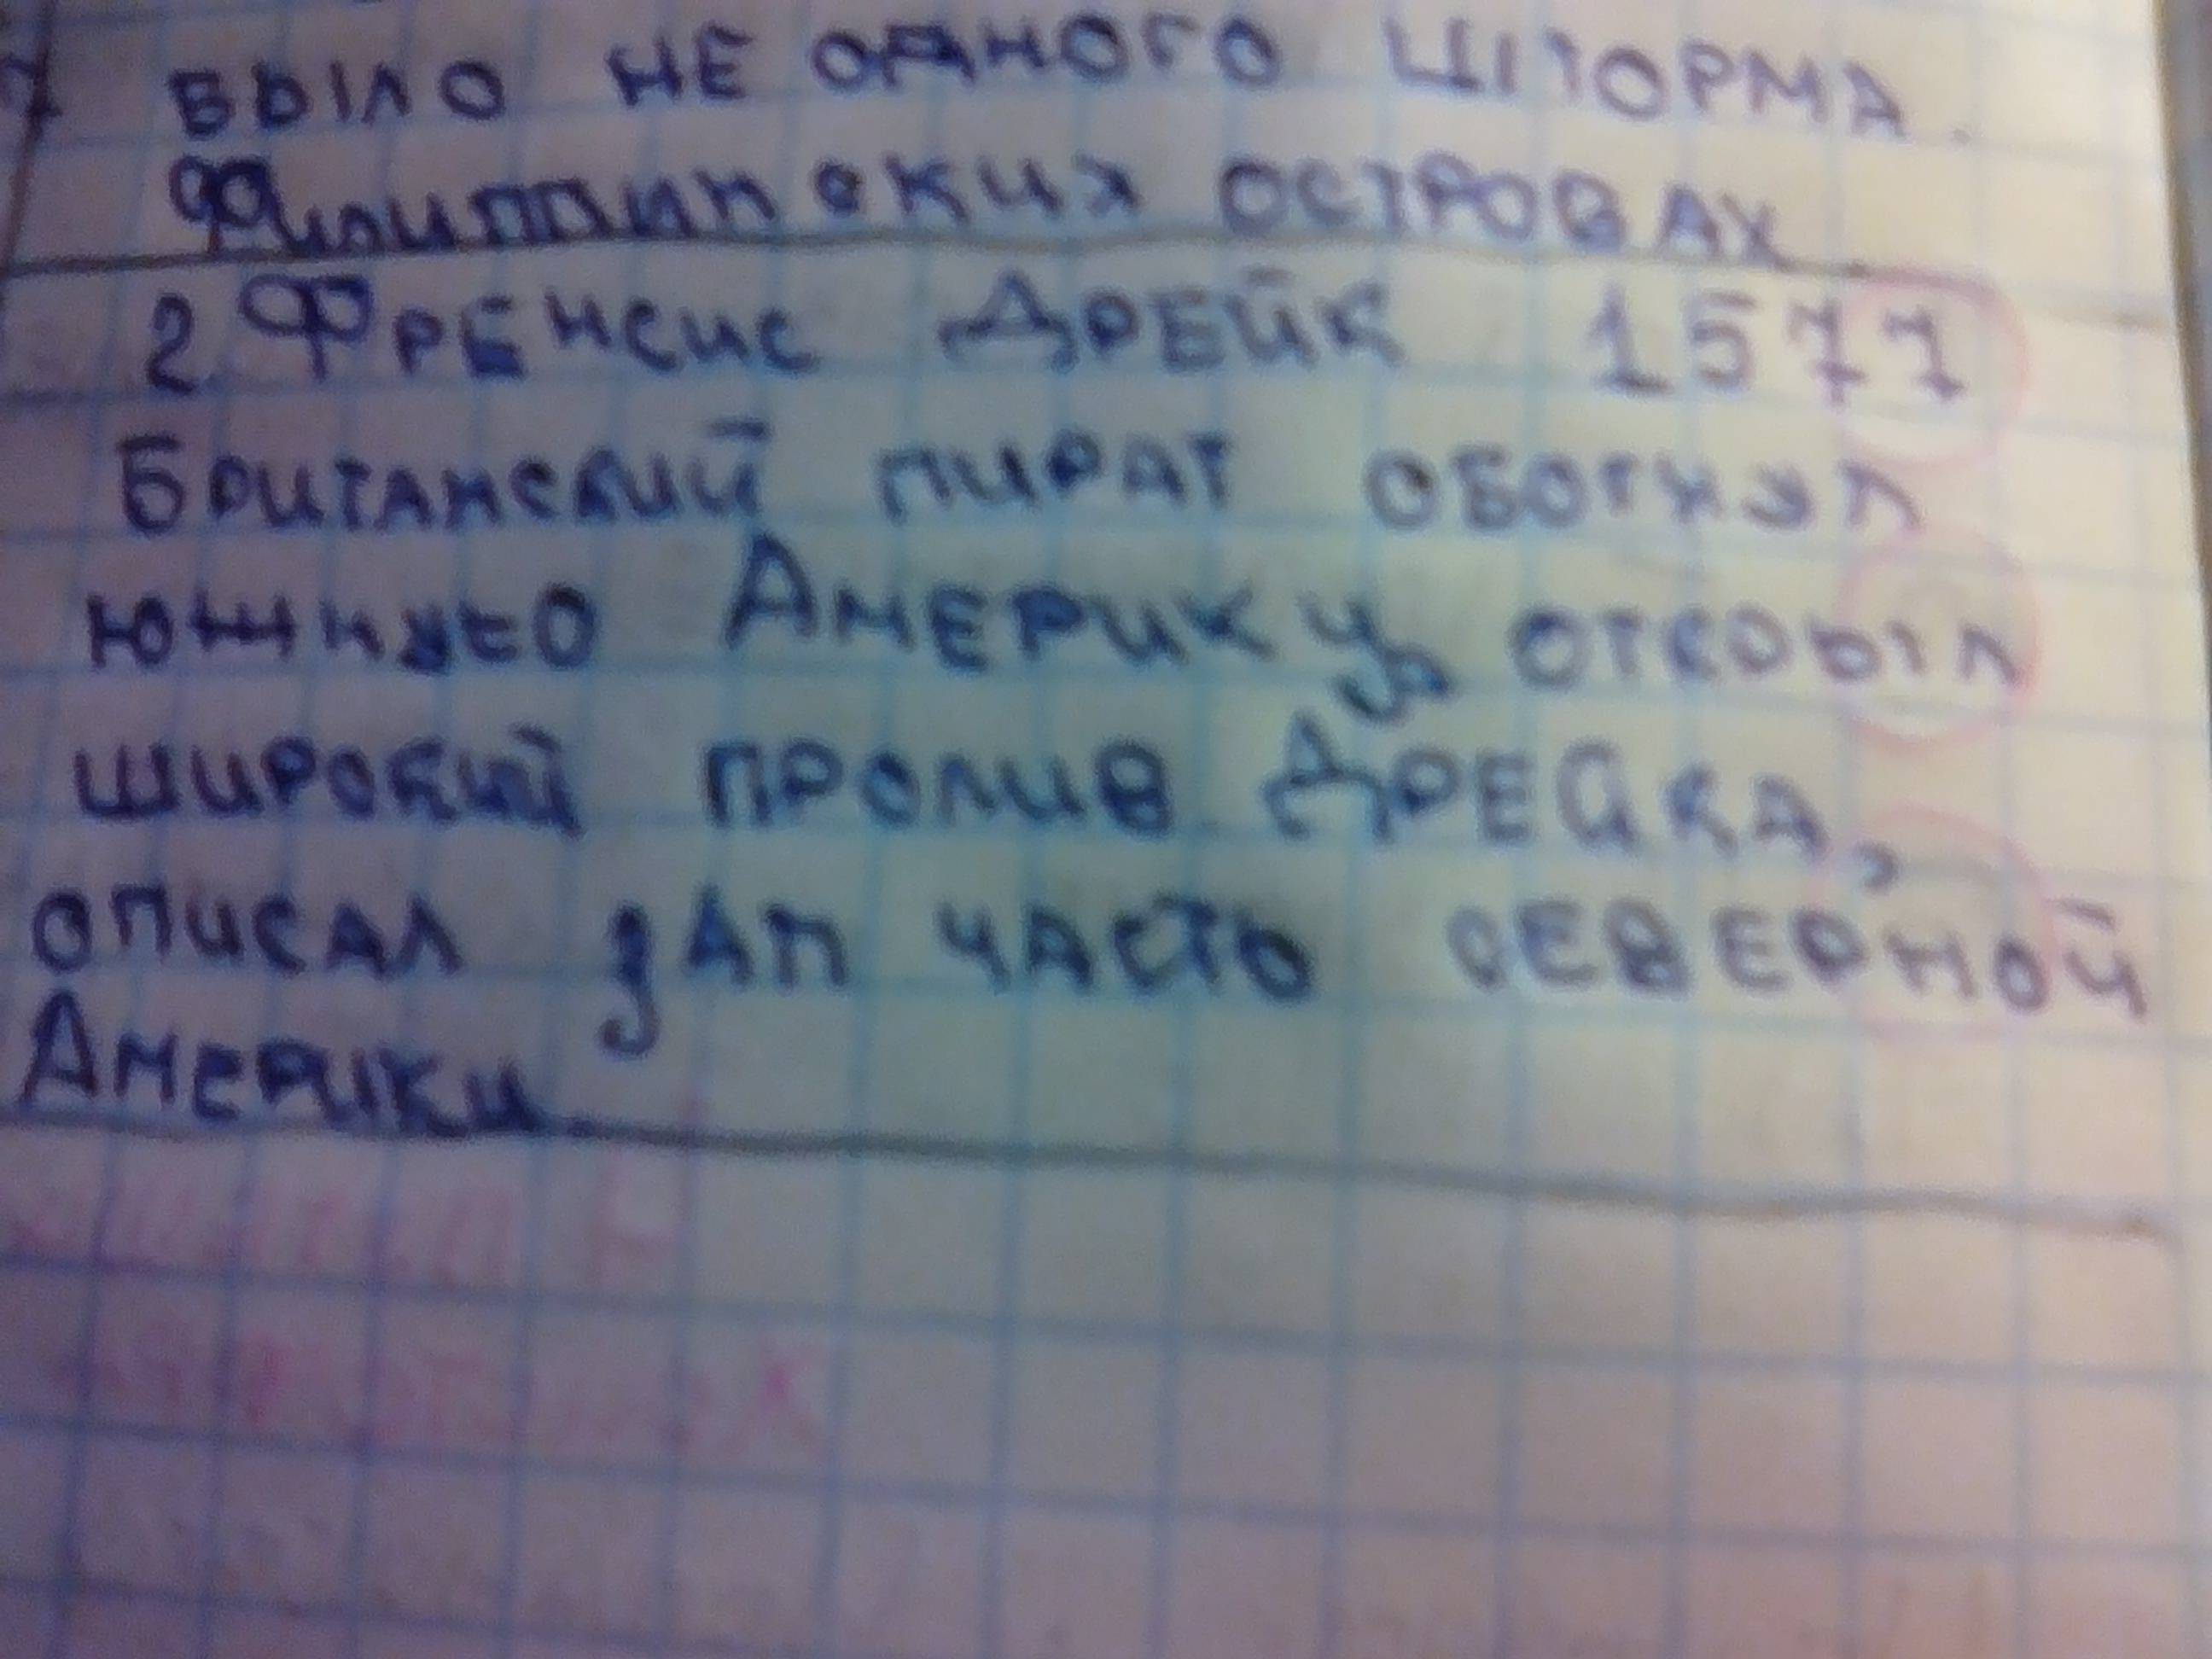 было не одного шторма.
Филиппинских островах
2. Френсис Дрейк 1577
Британский пират обогнул
южную Америку, открыл
широкий пролив Дрейка,
описал зап часть северной
Америки.